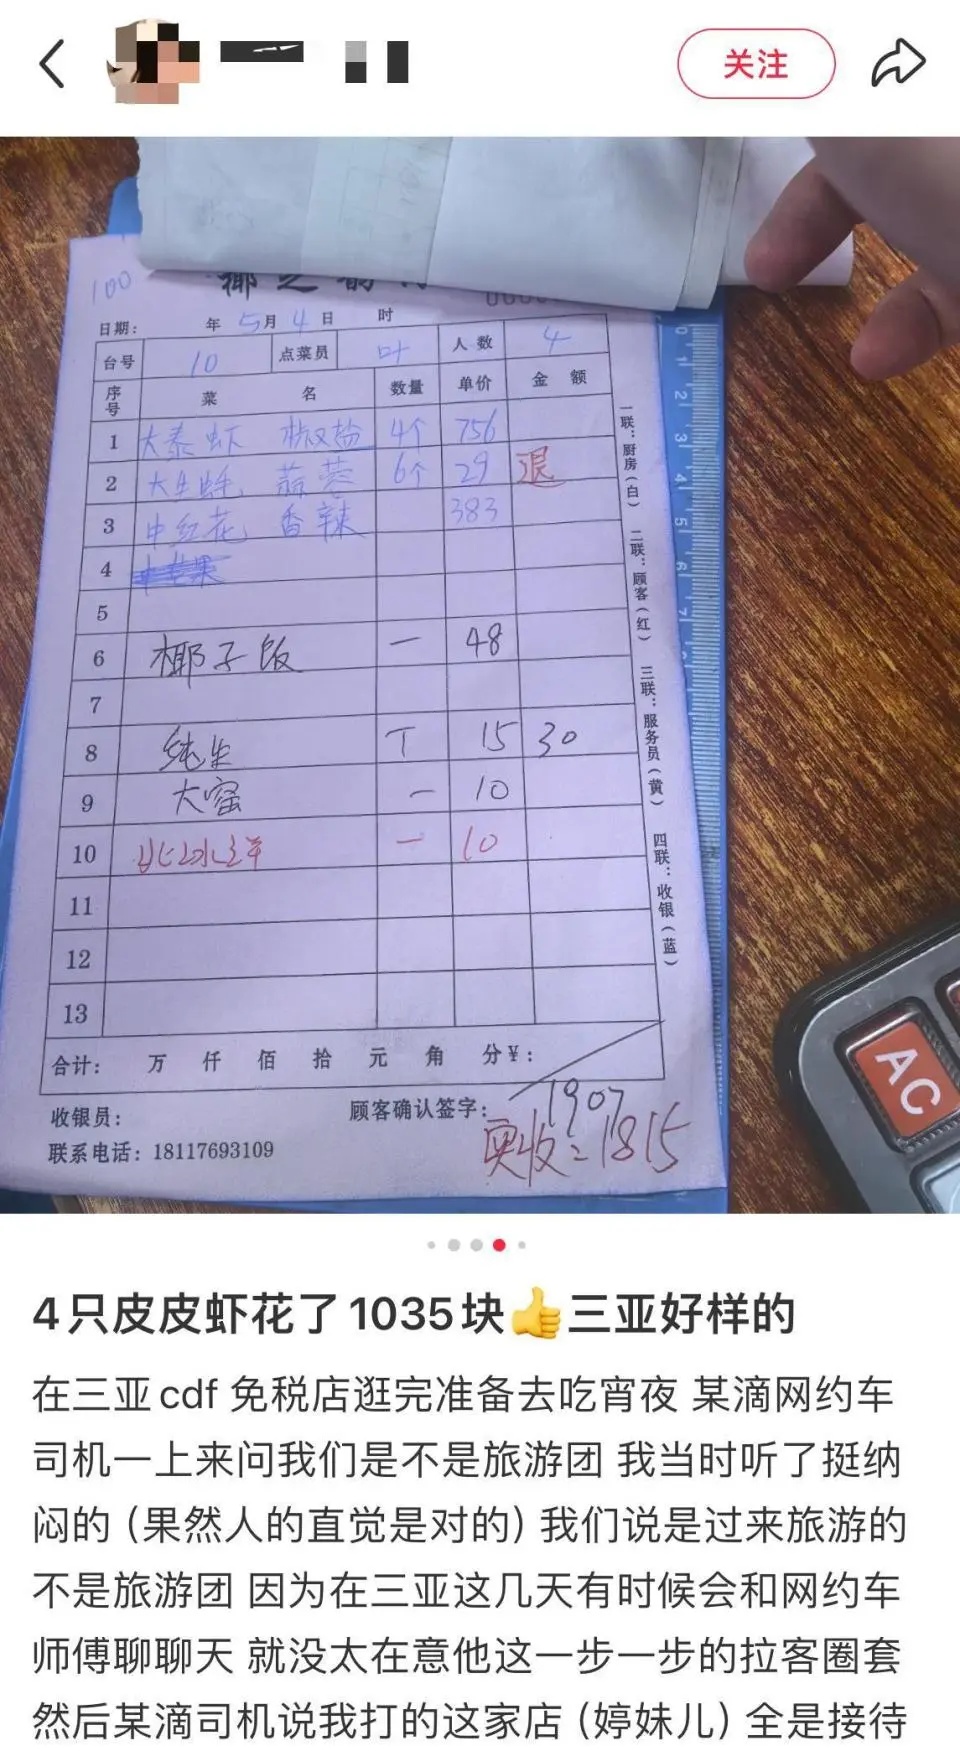 关注
100
日期： 年 5 月 4 日 时
台号 10 点菜员 叶 人数 4
序号 菜名 数量 单价 金额
1 大泰虾 椒盐 4个 756
2 大生蚝 蒜蓉 6个 29 退
3 中红花 香辣 383
4
5
6 椰子饭 一 48
7
8 纯生 T 15 30
9 大窑 一 10
10 北冰洋 一 10
11
12
13
合计： 万 仟 佰 拾 元 角 分¥：
1907
收银员： 顾客确认签字：
实收=1815
联系电话：18117693109
一联：厨房（白） 二联：顾客（红） 三联：服务员（黄） 四联：收银（蓝）
0 1 2 3 4 5 6 7
AC
4只皮皮虾花了1035块👍三亚好样的
在三亚cdf 免税店逛完准备去吃宵夜 某滴网约车
司机一上来问我们是不是旅游团 我当时听了挺纳
闷的（果然人的直觉是对的）我们说是过来旅游的
不是旅游团 因为在三亚这几天有时候会和网约车
师傅聊聊天 就没太在意他这一步一步的拉客圈套
然后某滴司机说我打的这家店（婷妹儿）全是接待